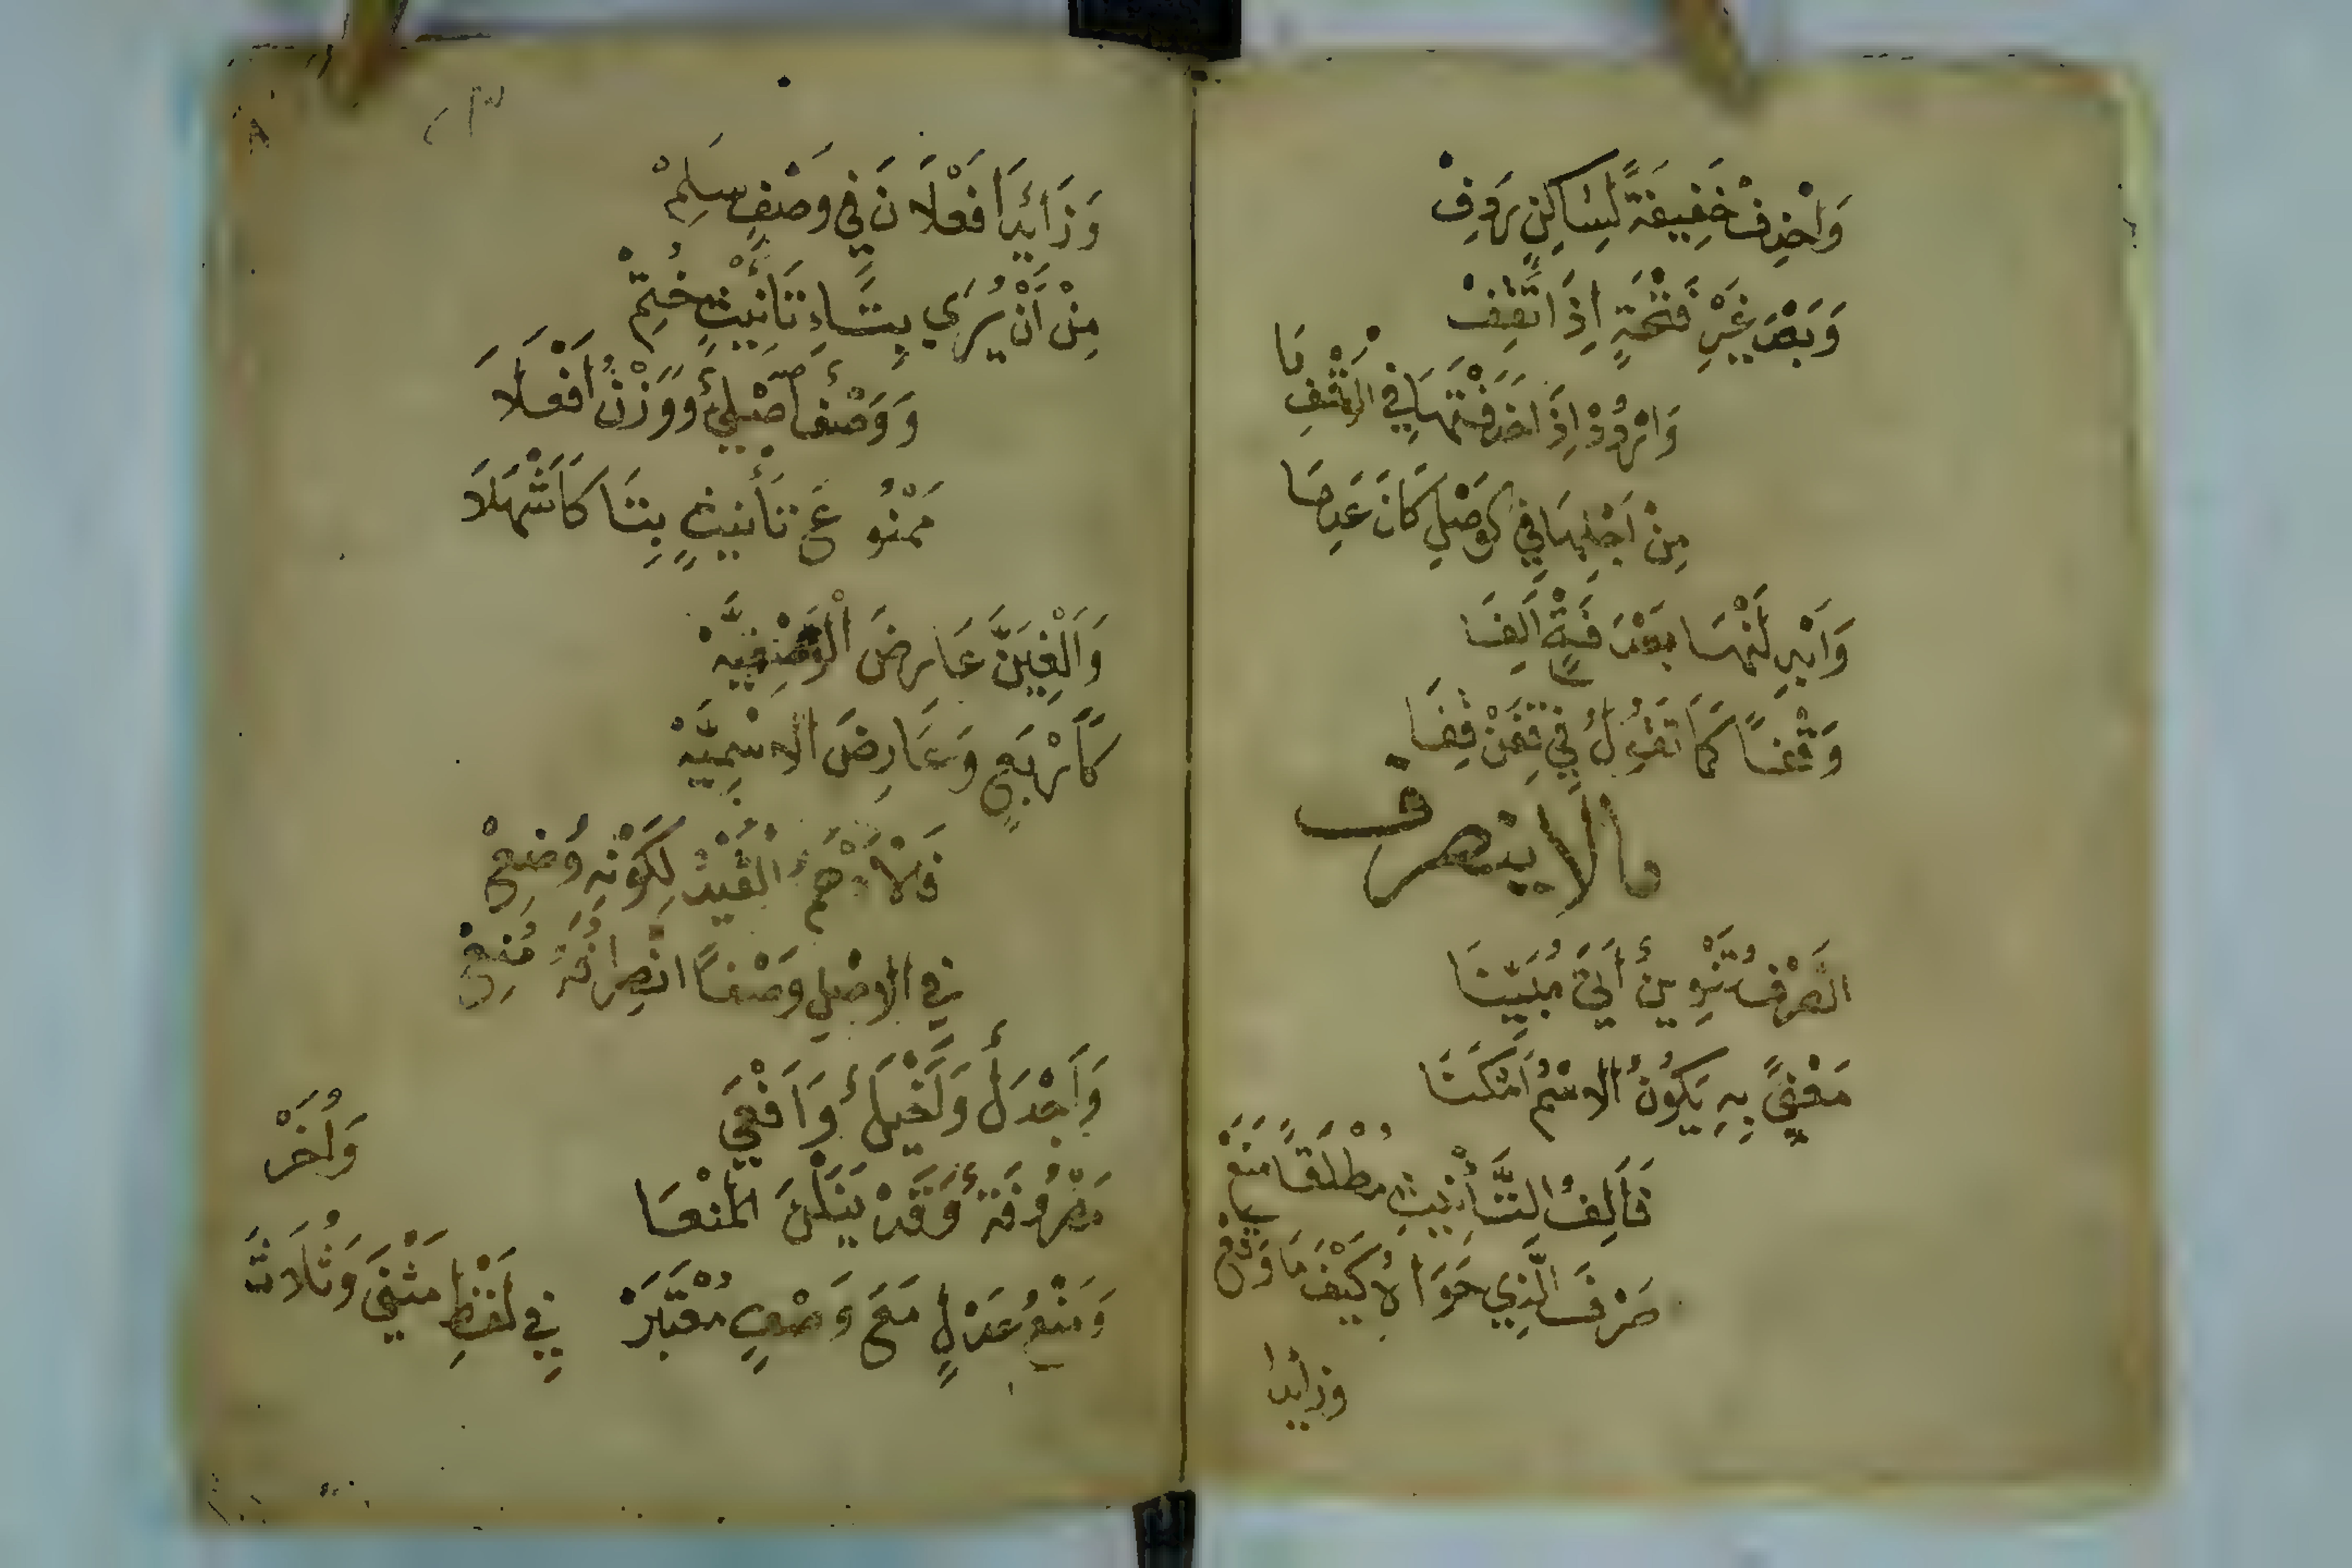 وَاحْذِفْ خَفِيفَةً لِسَاكِنٍ رَدِفْ
وَبَعْدَ غَيْرِ فَتْحَةٍ إِذَا تَقِفْ
وَارْدُدْ إِذَا حَذَفْتَهَا فِي الْوَقْفِ مَا
مِنْ أَجْلِهَا فِي الْوَصْلِ كَانَ عَدِمَا
وَأَبْدِلَنْهَا بَعْدَ فَتْحٍ أَلِفَا
وَقْفًا كَمَا تَقُولُ فِي قِفَنْ قِفَا
مالا ينصرف
الصَّرْفُ تَنْوِينٌ أَتَى مُبَيِّنَا
مَعْنًى بِهِ يَكُونُ الاسْمُ أَمْكَنَا
فَأَلِفُ التَّأْنِيثِ مُطْلَقًا مَنَعْ
صَرْفَ الَّذِي حَوَاهُ كَيْفَمَا وَقَعْ
وزايدا
وَزَائِدَا فَعْلَانَ فِي وَصْفٍ سَلِمْ
مِنْ أَنْ يُرَى بِتَاءِ تَأْنِيثٍ خُتِمْ
وَوَصْفٌ أَصْلِيٌّ وَوَزْنُ أَفْعَلَا
مَمْنُوعَ تَأْنِيثٍ بِتَا كَأَشْهَلَا
وَأَلْغِيَنَّ عَارِضَ الْوَصْفِيَّهْ
كَأَرْبَعٍ وَعَارِضَ الاسْمِيَّهْ
فَالْأَدْهَمُ الْقَيْدُ لِكَوْنِهِ وُضِعْ
فِي الاصْلِ وَصْفًا انْصِرَافُهُ مُنِعْ
وَأَجْدَلٌ وَأَخْيَلٌ وَأَفْعَى
مَصْرُوفَةٌ وَقَدْ يَنَلْنَ الْمَنْعَا
وَمَنْعُ عَدْلٍ مَعَ وَصْفٍ مُعْتَبَرْ
فِي لَفْظِ مَثْنَى وَثُلَاثَ
وَأُخَرْ